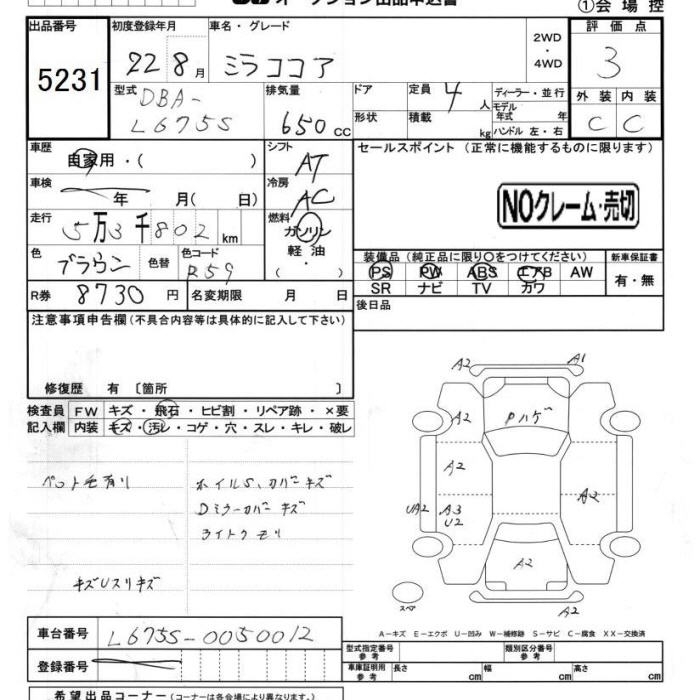 オークション出品申込書
①会場控
出品番号
5231
初度登録年月
22 8月
車名・グレード
ミラココア
2WD
・
4WD
評価点
3
型式
DBA-
L675S
排気量
650 CC
ドア
形状
定員
4 人
積載
kg
ディーラー・並行
モデル
年式 年
ハンドル 左・右
外装 内装
C C
車歴
自家用・( )
シフト
AT
セールスポイント (正常に機能するものに限ります)
車検
年 月( 日)
冷房
AC
NOクレーム・売切
走行
5万3千802 km
燃料
ガソリン
軽油
( )
色
ブラウン
色替
色コード
R59
装備品(純正品に限り○をつけてください)
PS PW ABS エアB AW
SR ナビ TV カワ
新車保証書
有・無
R券 8730 円
名変期限 月 日
後日品
注意事項申告欄(不具合内容等は具体的に記入して下さい)
修復歴 有〔箇所 〕
検査員
記入欄
FW キズ・飛石・ヒビ割・リペア跡・×要
内装 キズ・汚レ・コゲ・穴・スレ・キレ・破レ
ペット毛有り
ホイルS、カバーキズ
Dミラーカバーキズ
ライトクモリ
キズUスリキズ
A2 A1
A2 Pハゲ
A2
UA2 A3
U2
A2
A2
スペア
A2
A-キズ E-エクボ U-凹み W-補修跡 S-サビ C-腐食 XX-交換済
車台番号 L675S-0050012
登録番号
型式指定番号
参考
類別区分番号
参考
車庫証明用
参考
長さ cm 幅 cm 高さ cm
希望出品コーナー(コーナーは各会場により異なります。)